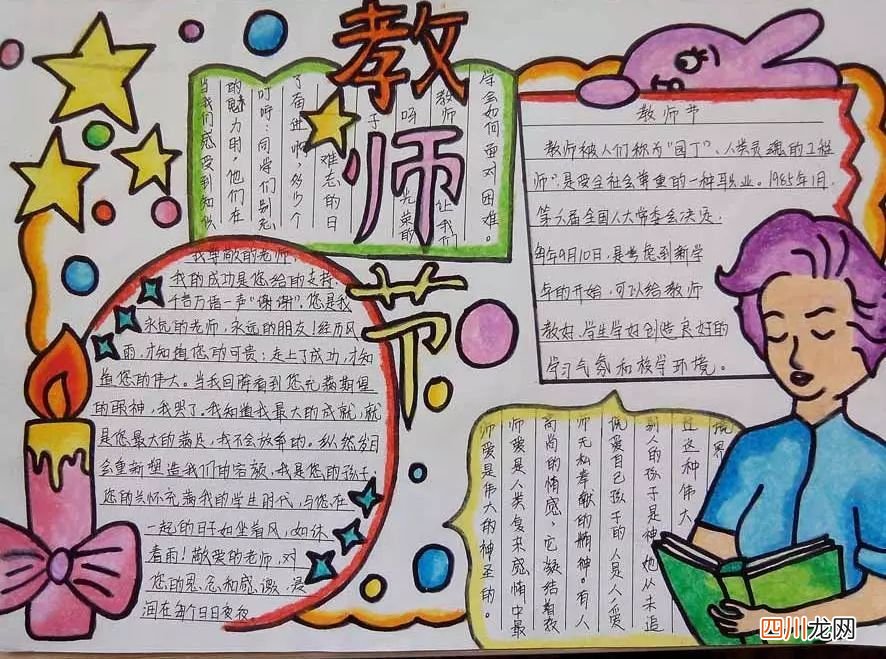 教师节
当我们感受到知识
的魅力时,他们在
叮咛:同学们别忘
了奋进啊,多少个
难忘的日
子
呀
教师
光荣的
让我们
学会如何面对困难。
教师节
教师被人们称为“园丁”、人类灵魂的工程
师”,是受全社会尊重的一种职业。1985年1月,
第六届全国人大常委会决定:
每年9月10日,是考虑到新学
年的开始,可以给教师
教好,学生学好创造良好的
学习气氛和校学环境。
我尊敬的老师
我的成功是您给的支持,
千言万语一声“谢谢”。您是我
永远的老师,永远的朋友!经历风
雨,才知道您的可贵;走上了成功,才知
道您的伟大。当我回眸看到您充满期望
的眼神,我哭了。我知道我最大的成就,就
是您最大的满足,我不会放弃的。纵然岁月
会重新塑造我们的容颜,我是您的孩子;
您的关怀充满我的学生时代,与您在
一起的日子如坐着风,如沐
着雨!敬爱的老师,对
您的思念和感激,浸
润在每个日日夜夜。
师爱是伟大的神圣的。
师爱是人类复杂感情中最
高尚的情感,它凝结着教
师无私奉献的精神。有人
说爱自己孩子的人是人爱
别人的孩子是神,她从未追
过这种伟大
境界
四川龙网